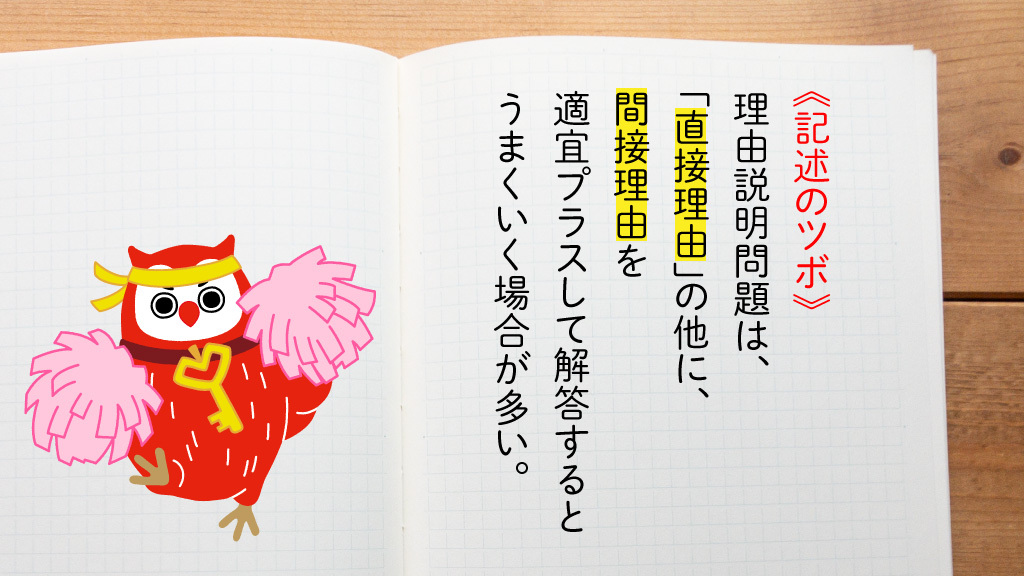 《記述のツボ》
理由説明問題は、
「直接理由」の他に、
間接理由を
適宜プラスして解答すると
うまくいく場合が多い。